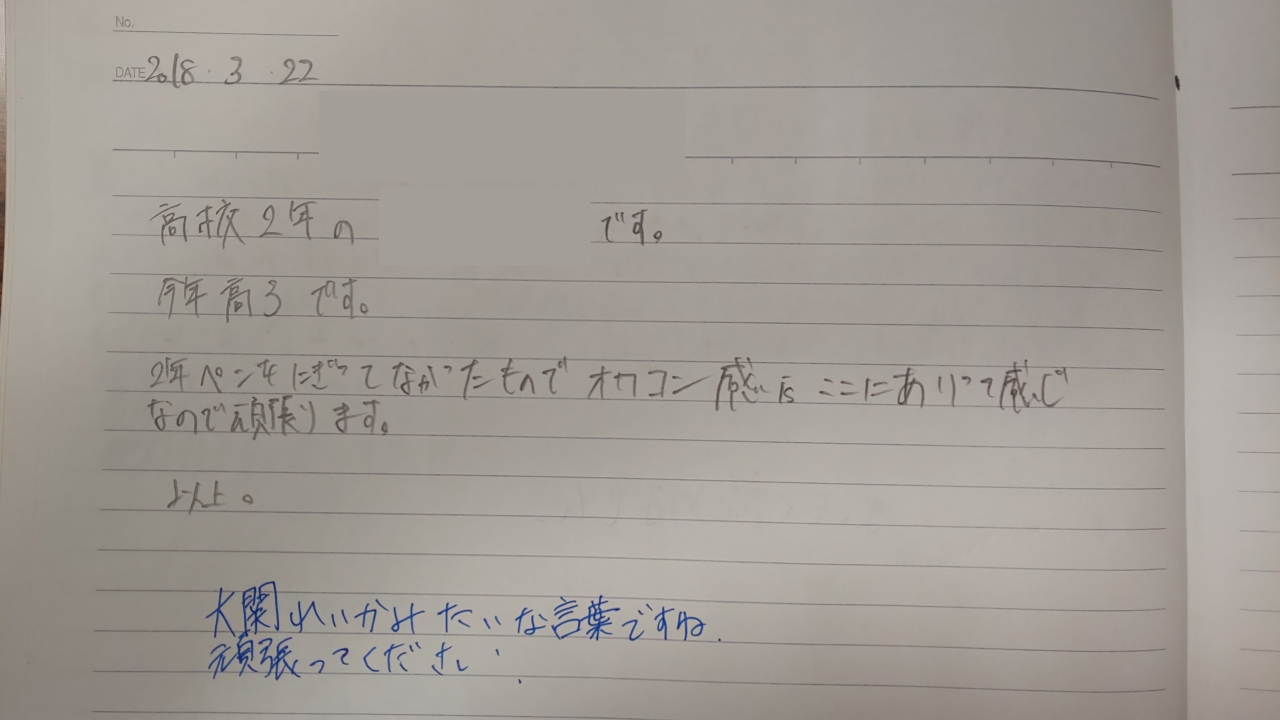 No.
DATE 2018・3・22
高校2年の です。
今年高3です。
2年ペンをにぎってなかったものでオワコン感is ここにありって感じ
なので頑張ります。
以上。
大関れいかみたいな言葉ですね.
頑張ってください.